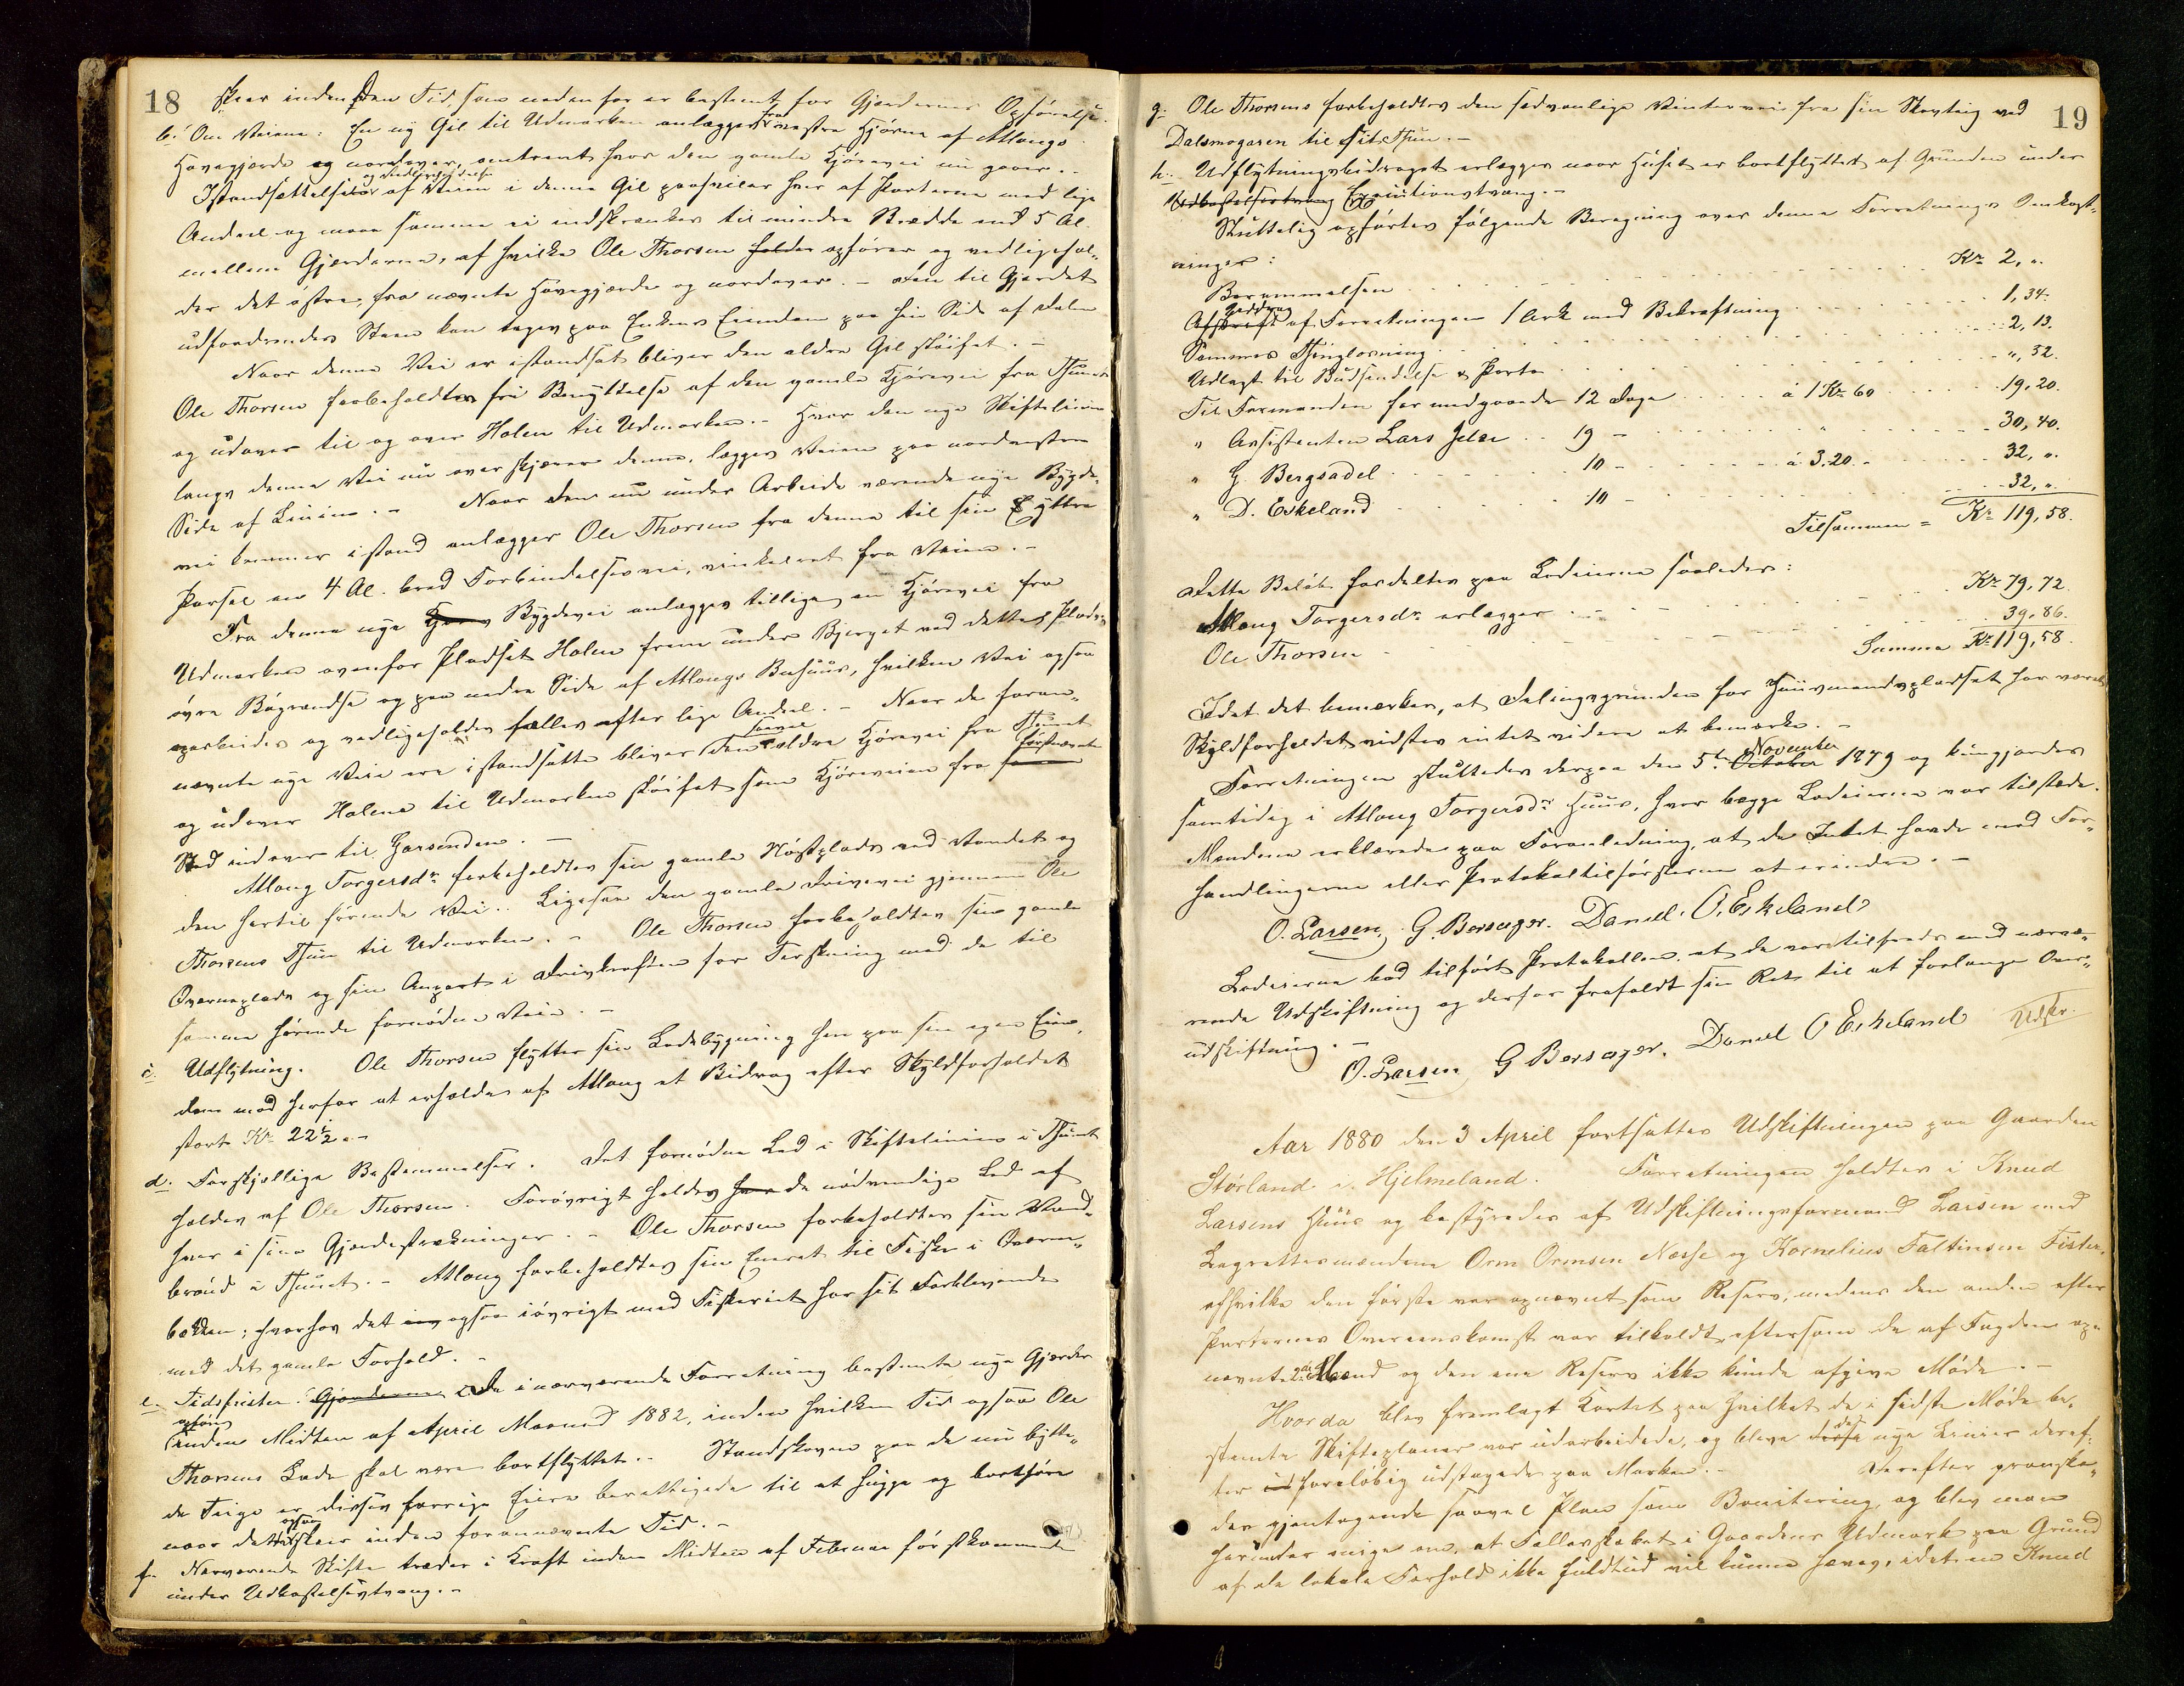 18
skeer inden den Tid, som nedenfor er bestemt for Gjerdernes Opførelse.
b. Om Veiene: En ny Gil til Udmarken anlægges fra vestre Hjørne af Allougs
Havegjerde og nordover, omtrent hvor den gamle Kjørevei nu gaaer.-
og vedligeholdelse
Istandsættelsen af Veien i denne Gil paahviler hver af Parterne med lige
Andeel og maa samme ei indskrænkes til mindre Bredde end 5 Al.
mellem Gjerderne, af hvilke Ole Thorsen holder opfører og vedligehol-
der det østre, fra nævnte Havegjerde og nordover.- Den til Gjerdet
udfordrendes Steen kan tages paa Enkens Eiendom paa hin Side af Dalen
Naar denne Vei er istandsat bliver den ældre Gil sløifet.-
Ole Thorsen forbeholdtes fri Benyttelse af den gamle Kjørevei fra Thunet
og udover til og over Holen til Udmarken.- Hvor den nye Skiftelinie
langs denne Vei nu overskjærer denne, lægges Veien paa nordvestre
Side af Linien.- Naar den nu under Arbeide værende nye Bygde-
vei kommer istand anlægger Ole Thorsen fra denne til sin Yttre
Parsel en 4 Al. bred Forbindelsesvei, vinkelret fra Veien.-
Fra denne nye Bygdevei anlægges tillige en Kjørevei fra
Udmarken ovenfor Pladset Holen frem under Bjerget ved dettes Plads
øvre Bøgrændse og paa nedre Side af Allougs Buhuus, hvilken Vei ogsaa
oparbeides og vedligeholdes fælles efter lige Andeel.- Naar de foran-
nævnte nye Veie ere istandsatte bliver den ældre Kjørevei fra Thunet
og udover Holene til Udmarken sløifet som Kjøreveien fra førstnævnte
Sted indover til Garsenden.-
Alloug Torgersdr. forbeholdtes sin gamle Nøstplads ved Vandet og
den hertil førende Vei.. Ligesaa den gamle Drivevei gjennem Ole
Thorsens Thun til Udmarken.- Ole Thorsen forbeholdtes sin gamle
Qværneplads og sin Anpart i Drivkraften for Terskning med de til
samme hørende fornødne Veie.-
c. Udflytning. Ole Thorsen flytter sin Ladebygning hen paa sin egen Eien-
dom mod herfor at erholde af Alloug et Bidrag efter Skyldforholdet
stort Kr. 22½.-
d. Forskjellige Bestemmelser. Det fornødne Led i Skiftelinien i Thunet
holdes af Ole Thorsen. Forøvrigt holdes de nødvendige Led af
hver i sine Gjerdestrækninger.- Ole Thorsen forbeholdtes sin Vand-
brønd i Thunet.- Alloug forbeholdtes sin Eneret til Fisker i Qværn-
bækken; hvorhos det ogsaa iøvrigt med Fiskeriet har sit Forblevende
med det gamle Forhold.-
e. Tidsfrister. Gjerderne De i nærværende Forretning bestemte nye Gjerder
opføres
inden Midten af April Maaned 1882, inden hvilken Tid ogsaa Ole
Thorsens Lade skal være bortflyttet.. Standskoven paa de nu bytte-
de Teige er disses forrige Eiere berettigede til at hugge og bortføre
ogsaa
naar dette skeer inden forannævnte Tid.-
f. Nærværende Skifte træder i Kraft inden Midten af Februar førstkommende
under Udkastelsestvang.-
19
g. Ole Thorsens forbeholdtes den sedvanlige Vintervei fra sin Skovteig ved
Dalsmogaren til sit Thun.-
h. Udflytningsbidraget erlægges naar Huset er bortflyttet af Grunden under
Udkastelsestvang Executionstvang.-
Sluttelig opførtes følgende Beregning over denne Forretnings Omkost-
ninger:
Berammelsen . . . Kr. 2, ".
Afskrift af Forretningen 1 Ark med Bekræftning . . . 1,34.
Sammes Thinglæsning . . . 2,13.
Udlagt til Budsendelse & Porto . . . ",52.
Til Formanden for medgaaede 12 Dage . . . á 1 Kr. 60 . . . 19,20.
" Assistenten Lars Jelsa . . 19 - . . . " . . . 30,40.
" G. Bergsadel . . . 10 - . . . á 3,20.- . . . 32, ".
" D. Eskeland . . . 10 - . . . 32, ".
Tilsammen = Kr. 119,58.
Dette Beløb fordeltes paa Lodeierne saaledes:
Alloug Torgersdr. erlægger . . . Kr. 79,72.
Ole Thorsen . . . 39,86.
Summa Kr. 119,58.
Idet det bemærkes, at Delingsgrunden for Huusmandspladset har været
Skyldforholdet vidstes intet videre at bemærke.-
November
Forretningen sluttedes derpaa den 5te October 1879 og kundgjordes
samtidig i Alloug Torgersdr. Huus, hvor begge Lodeierne var tilstede.
Mændene erklærede paa Foranledning, at de Intet havde mod For-
handlingerne eller Protokoltilførslerne at erindre.-
O. Larsen. G. Bersager. Daniel. O. Eskeland
Lodeierne bad tilført Protokollen at de var tilfreds med nærvæ-
rende Udskiftning og derfor frafaldt sin Ret til at forlange Over-
udskiftning.-
O. Larsen G Bersager. Daniel O Eskeland Udskr.
Aar 1880 den 3 April fortsattes Udskiftningen paa Gaarden
Størland i Hjelmeland. Forretningen holdtes i Knud
Larsens Huus og bestyredes af Udskiftningsformand Larsen med
Lagrettesmændene Orm Ormsen Næsse og Kornelius Faltinsen Fister,
af hvilke den første var opnævnt som Reserv, medens den anden efter
Parternes Overeenskomst var tilkaldt eftersom de af Fogden op-
nævnte 2de Mænd og den ene Reserv ikke kunde afgive Møde.-
Hvorda blev fremlagt Kartet paa hvilket de i sidste Møde be-
stemte Skifteplaner var udarbeidede, og bleve de nye Linier deref-
ter foreløbig udstagede paa Marken.- Derefter granske-
des gjentagende saavel Plan som Bonitering og blev man
herunder enige om, at Fællesskabet i Gaardens Udmark paa Grund
af de lokale Forhold ikke fuldtud vil kunne hæves, idet en Knud